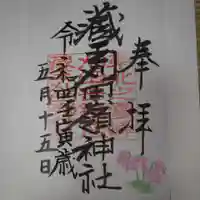 奉拝
蔵王刈田嶺神社
令和四壬寅歳
五月十五日